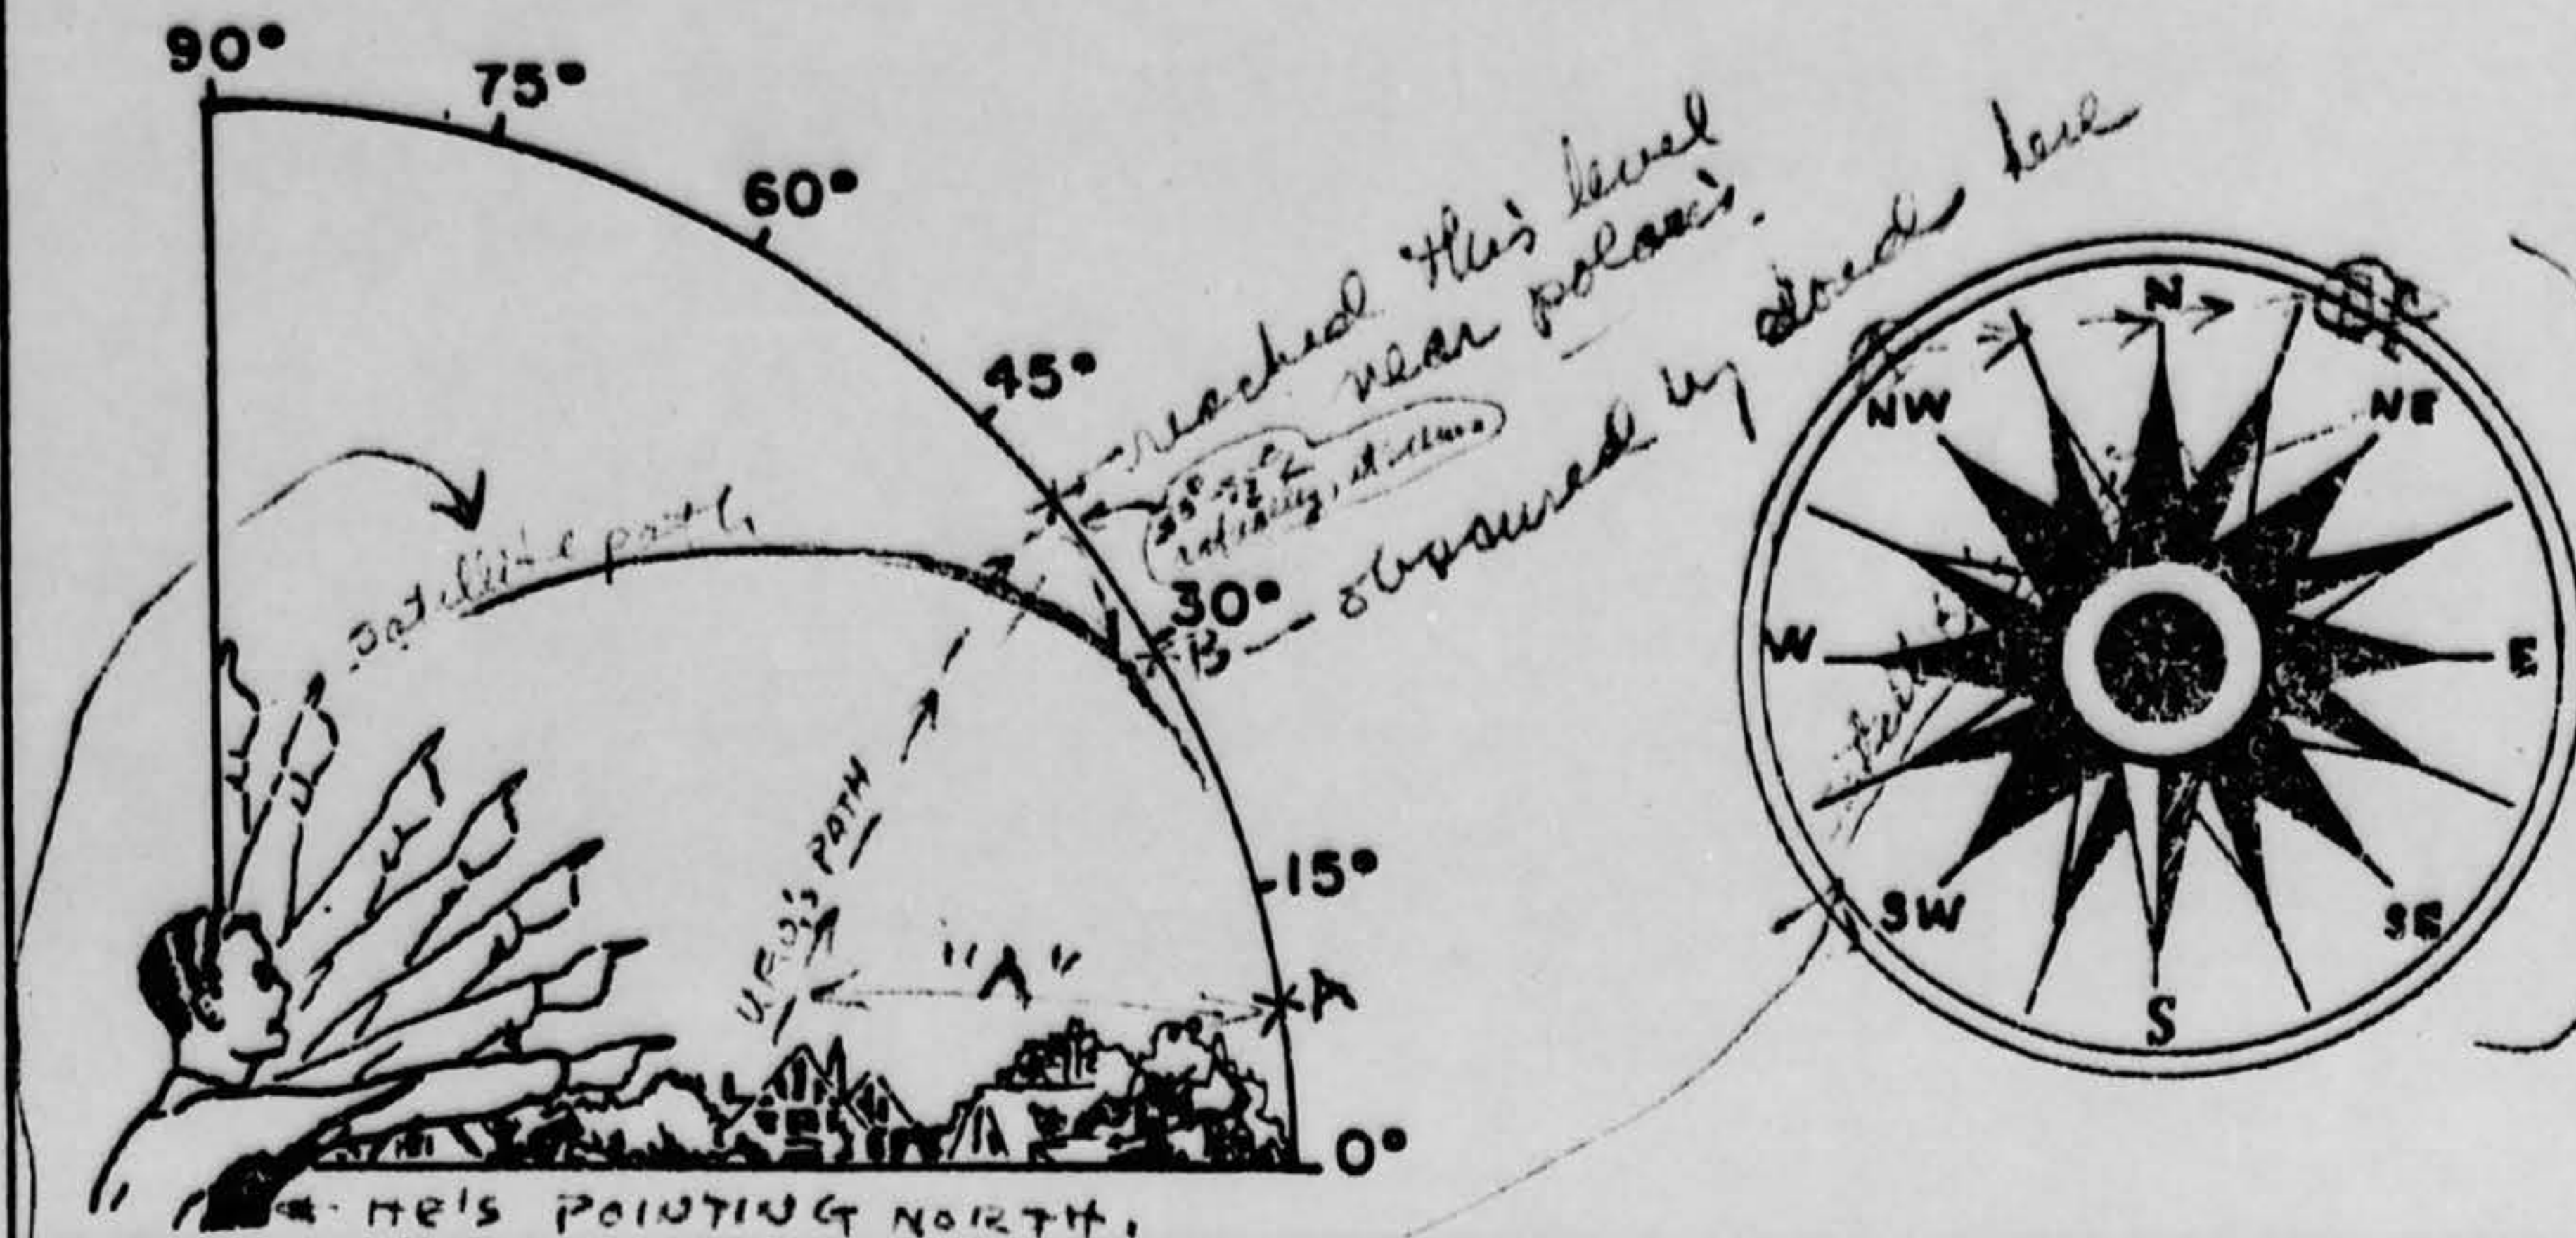 90°
75°
60°
45°
30°
15°
0°
reached this level
near polaris.
B — obscured by cloud here
satellite path
U.F.O.'s PATH
"A"
A
HE'S POINTING NORTH.
N
NE
E
SE
S
SW
W
NW